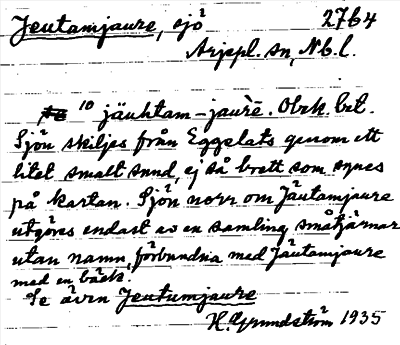 Jeutamjaure, sjö 2764
Arjepl. sn, Nb. l.
10 jäuhtam-jaurē. Obek. bet.
Sjön skiljes från Eggelats genom ett
litet smalt sund, ej så brett som synes
på kartan. Sjön norr om Jäutamjaure
utgöres endast av en samling småtjärnar
utan namn, förbundna med Jäutamjaure
med en bäck.
Se även Jeutumjaure
H. Grundström 1935